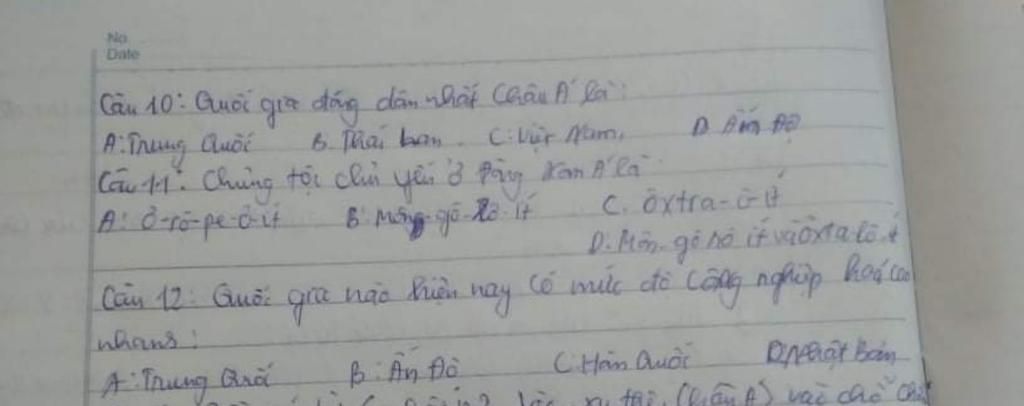 No.
Date
Câu 10: Quốc gia đông dân nhất Châu Á là:
A: Trung Quốc B. Thái Lan. C: Việt Nam, D Ấn Độ
Câu 11: Chủng tộc chủ yếu ở Đông Nam Á là
A: Ơ-rô-pe-ô-ít B: Môn-gô-lô-ít C. ôxtra-ô-ít
D: Môn gô lô ít và ôxtralô ít
Câu 12: Quốc gia nào hiện nay có mức độ công nghiệp hoá cao
nhans:
A: Trung Quốc B: Ấn Độ C: Hàn Quốc D: Nhật Bản
(Châu Á) vào chỗ